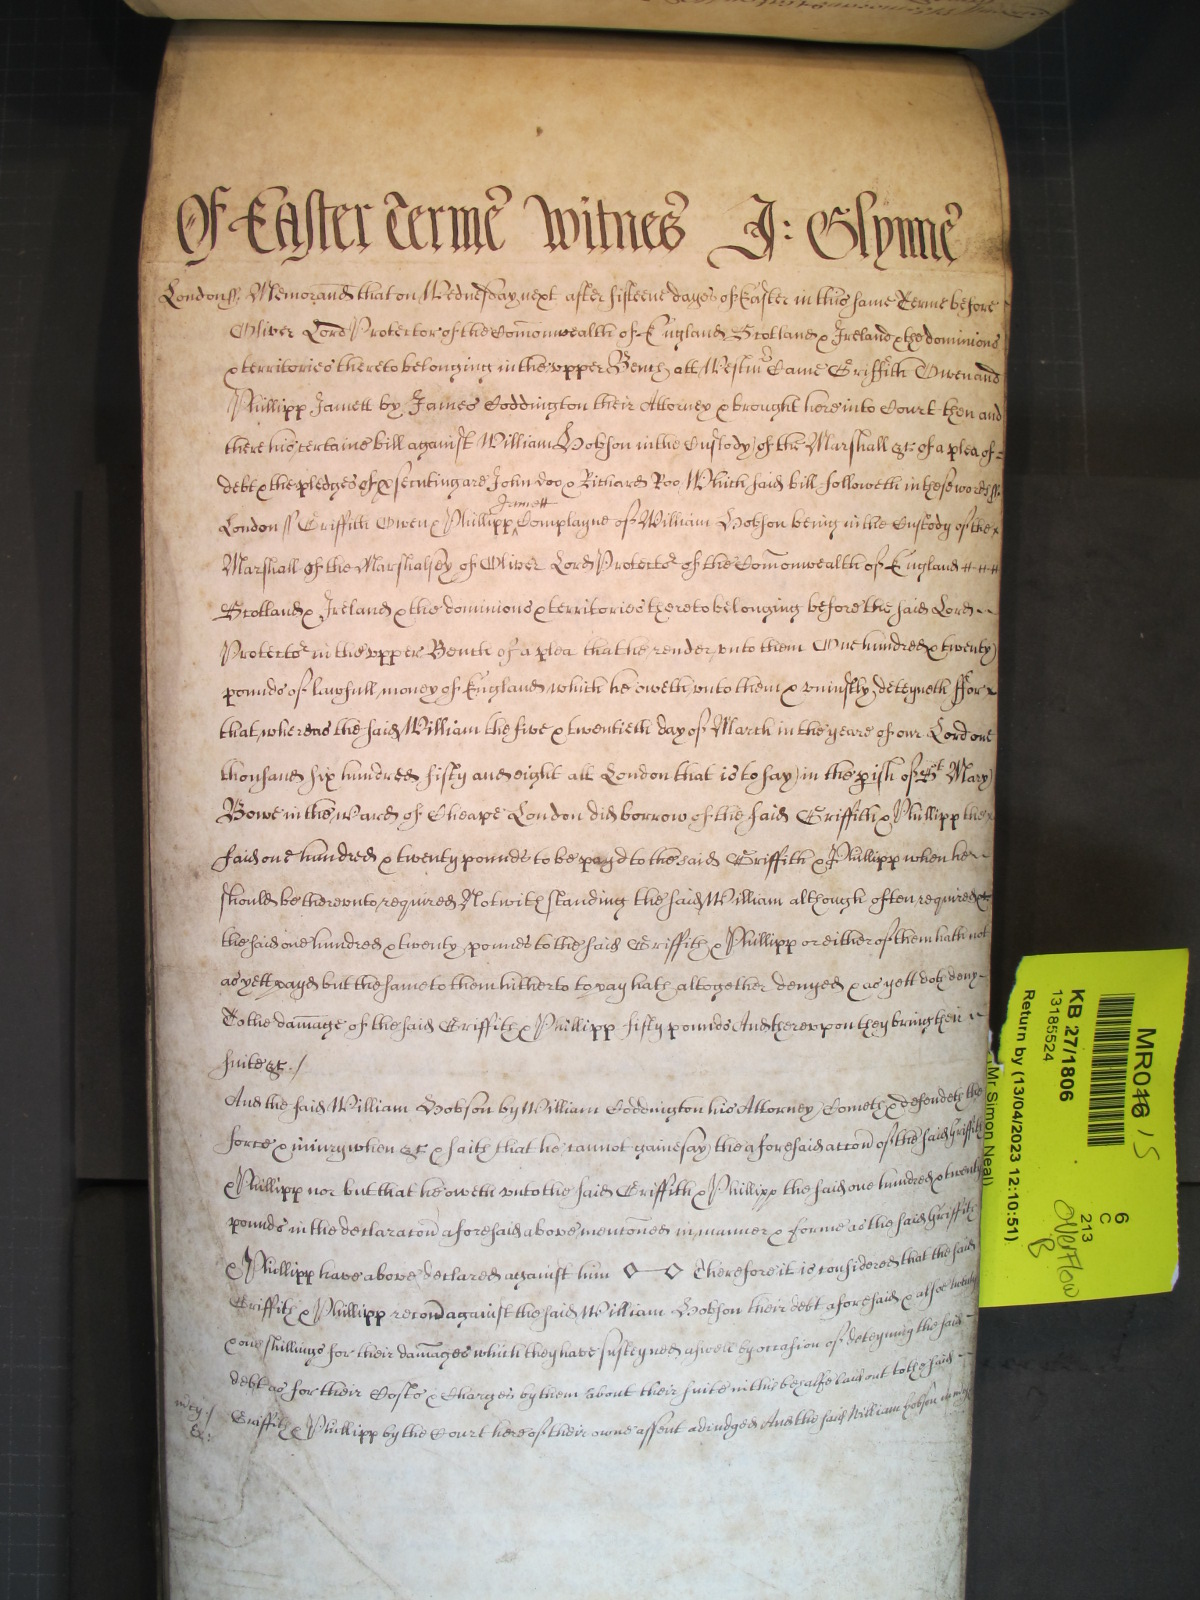 Of Easter Terme Witnes J: Glynne
London ss. Memorand that on Wednesday next after fifteene dayes of Easter in this same Terme before
Oliver Lord Protector of the Comonwealth of England Scotland & Ireland & the dominions
& territories thereto belonging in the upper Bench att Westmr Came Griffith Owen and
Phillipp Jamett by James Coddington their Attorney & brought here into Court then and
there his certaine bill against William Hobson in the Custody of the Marshall &c of a plea of
debt & the pledges of p'secuting are John Doo & Richard Roo Which said bill followeth in these words ss.
London ss Griffith Owen & Phillipp Jamett Complayne of William Hobson being in the Custody of the
Marshall of the Marshalsey of Oliver Lord Protector of the Comonwealth of England
Scotland & Ireland & the dominions & territories thereto belonging before the said Lord
Protector in the upper Bench of a plea that he render unto them One hundred & twenty
pounds of lawfull money of England which he oweth unto them & uniustly deteyneth ffor
that whereas the said William the five & twentieth day of March in the yeare of our Lord one
thousand six hundred fifty and eight att London that is to say in the pish of St Mary
Bowe in the Ward of Cheape London did borrow of the said Griffith & Phillipp the
said one hundred & twenty pounds to be payd to the said Griffith & Phillipp when he
should be thereunto required Notwithstanding the said William although often required &c
the said one hundred & twenty pounds to the said Griffith & Phillipp or either of them hath not
as yett payd but the same to them hitherto to pay hath altogether denyed & as yett doth deny
To the damage of the said Griffith & Phillipp fifty pounds And thereupon they bring their
suite &c. /
And the said William Hobson by William Coddington his Attorney Cometh & defendeth the
force & iniury when &c & saith that he cannot gainesay the aforesaid accon of the said Griffith
& Phillipp nor but that he oweth unto the said Griffith & Phillipp the said one hundred & twenty
pounds in the declaracon aforesaid above menconed in manner & forme as the said Griffith
& Phillipp have above declared against him Therefore it is considered that the said
Griffith & Phillipp recover against the said William Hobson their debt aforesaid & alsoe twenty
& one shillings for their damages which they have susteyned aswell by occasion of deteyning the said
debt as for their Costs & Charges by them about their suite in this behalfe laid out to the said
Griffith & Phillipp by the Court here of their owne assent adiudged And the said William Hobson in mcy
mcy: /
&c:
MR046 / 5
KB 27/1806
13185524
Return by (13/04/2023 12:10:51)
(Mr Simon Neal)
6
C
213
Overflow
B